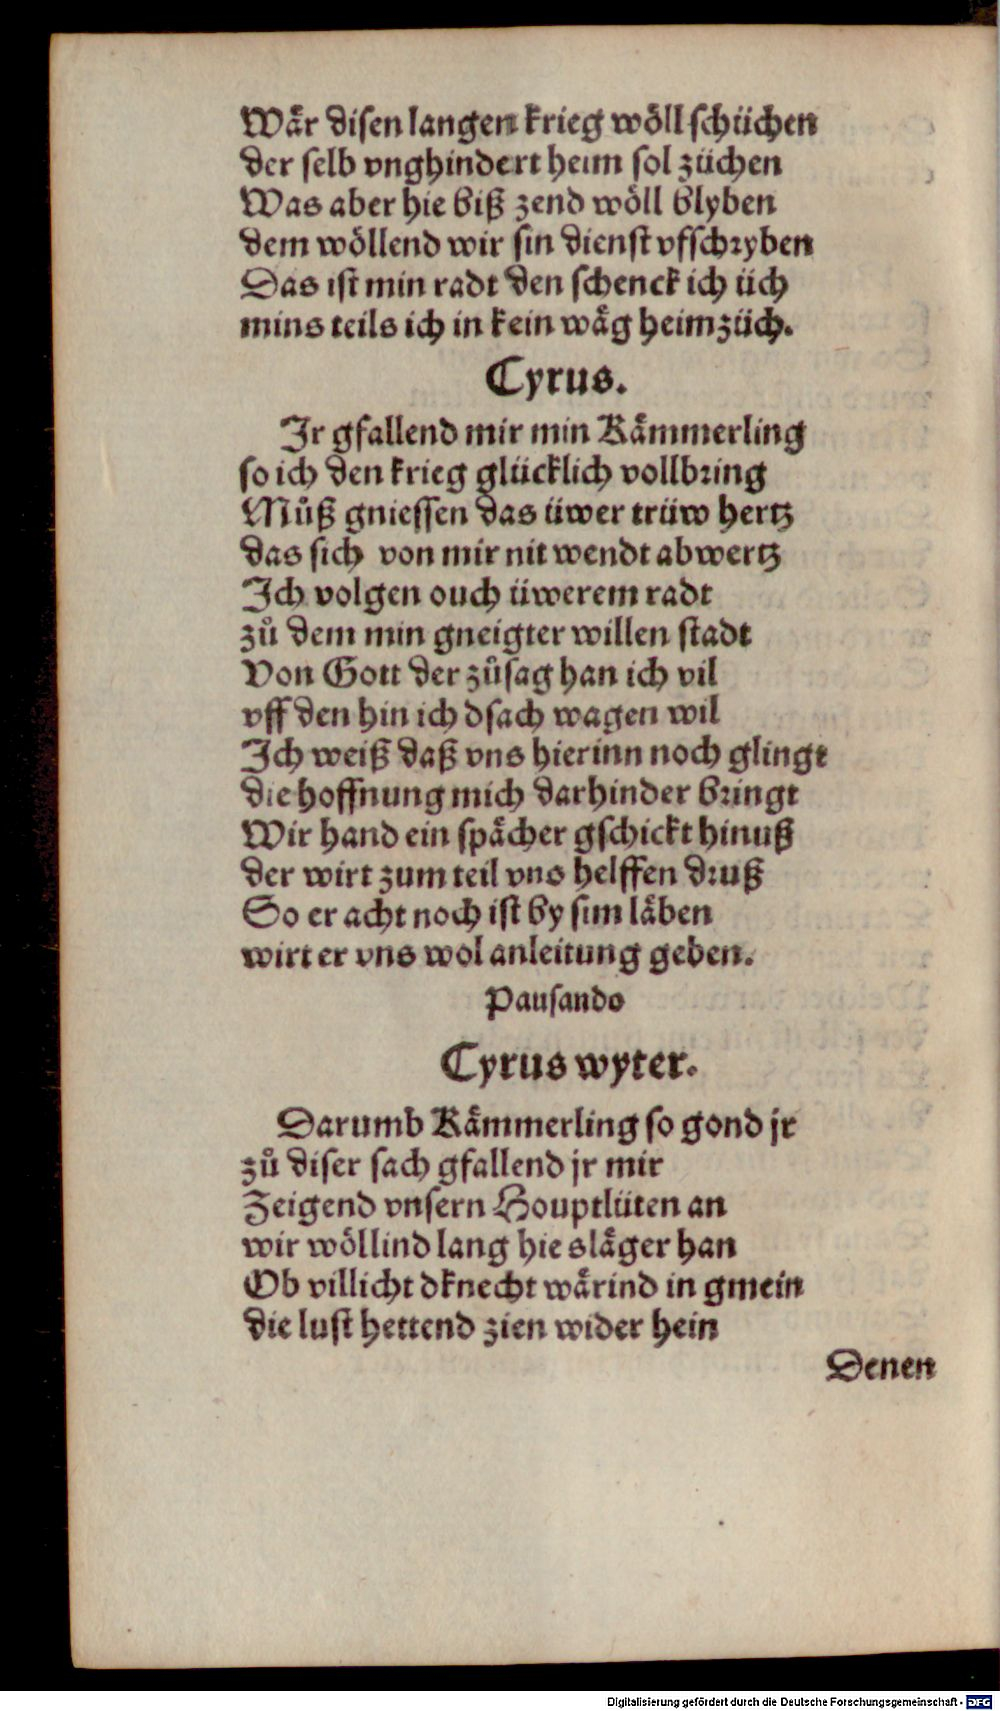 Wår disen langen krieg wöll schüchen
der selb vnghindert heim sol züchen
Was aber hie biß zend wöll blyben
dem wöllend wir sin dienst vfschryben
Das ist min radt den schenck ich üch
mins teils ich in kein wåg heimzüch.
Cyrus.
Ir gfallend mir min Kåmmerling
so ich den krieg glücklich vollbring
Můß gniessen das üwer trüw hertz
das sich von mir nit wendt abwertz
Ich volgen ouch üwerem radt
zů dem min gneigter willen stadt
Von Gott der zůsag han ich vil
vff den hin ich dsach wagen wil
Ich weiß daß vns hierinn noch glingt
die hoffnung mich darhinder bringt
Wir hand ein spåcher gschickt hinuß
der wirt zum teil vns helffen druß
So er acht noch ist by sim låben
wirt er vns wol anleitung geben.
Pausando
Cyrus wyter.
Darumb Kåmmerling so gond jr
zů diser sach gfallend jr mir
Zeigend vnsern Houptlüten an
wir wöllind lang hie slåger han
Ob villicht dknecht wårind in gmein
die lust hettend zien wider hein
Denen
Digitalisierung gefördert durch die Deutsche Forschungsgemeinschaft - DFG